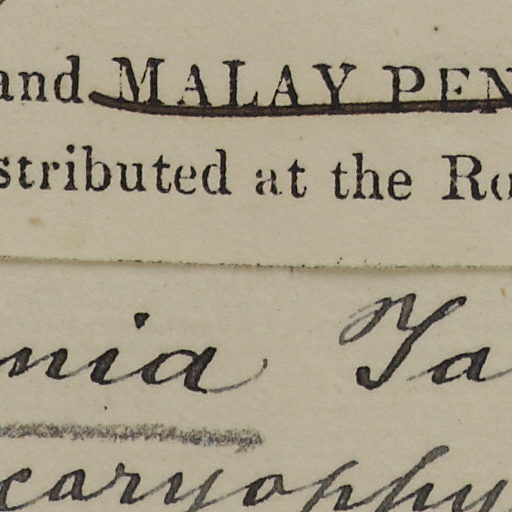 and MALAY PEN
stributed at the Ro
nia Ta
caryophy